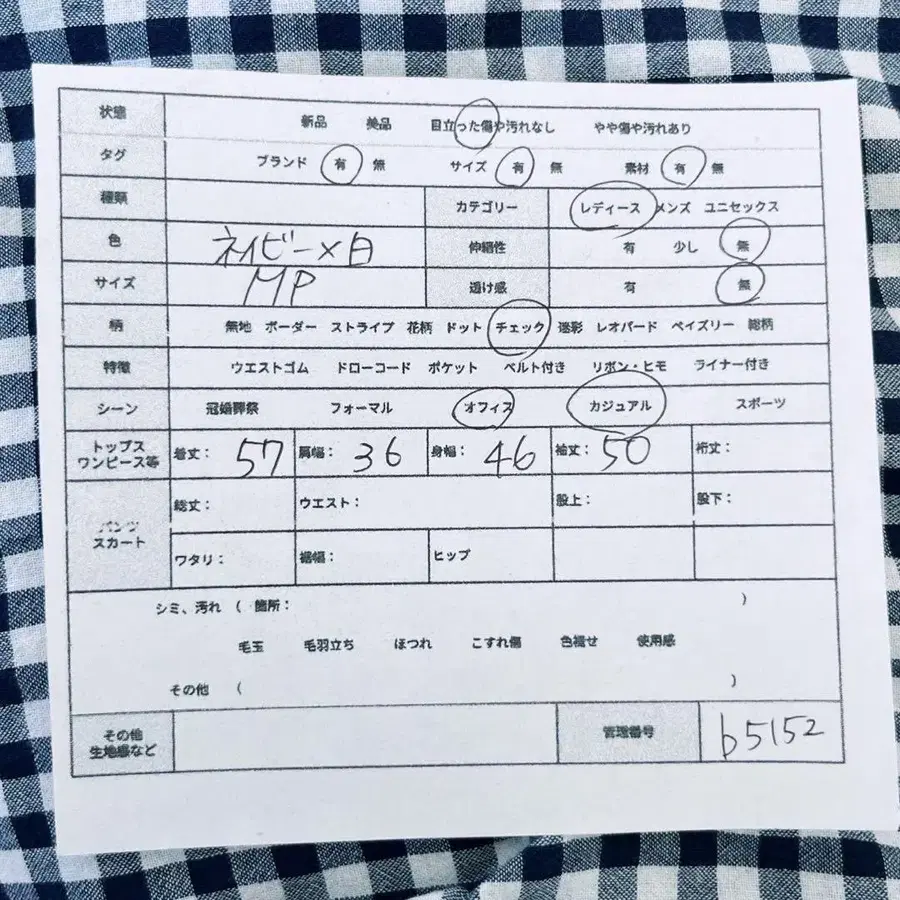 状態 新品 美品 目立った傷や汚れなし やや傷や汚れあり
タグ ブランド 有 無 サイズ 有 無 素材 有 無
種類 カテゴリー レディース メンズ ユニセックス
色 ネイビー×白 伸縮性 有 少し 無
サイズ MP 透け感 有 無
柄 無地 ボーダー ストライプ 花柄 ドット チェック 迷彩 レオパード ペイズリー 総柄
特徴 ウエストゴム ドローコード ポケット ベルト付き リボン・ヒモ ライナー付き
シーン 冠婚葬祭 フォーマル オフィス カジュアル スポーツ
トップス
ワンピース等 着丈: 57 肩幅: 36 身幅: 46 袖丈: 50 裄丈:
総丈: ウエスト: 股上: 股下:
パンツ
スカート
ワタリ: 裾幅: ヒップ
シミ、汚れ ( 箇所: )
毛玉 毛羽立ち ほつれ こすれ傷 色褪せ 使用感
その他 ( )
その他
生地感など 管理番号 b5152